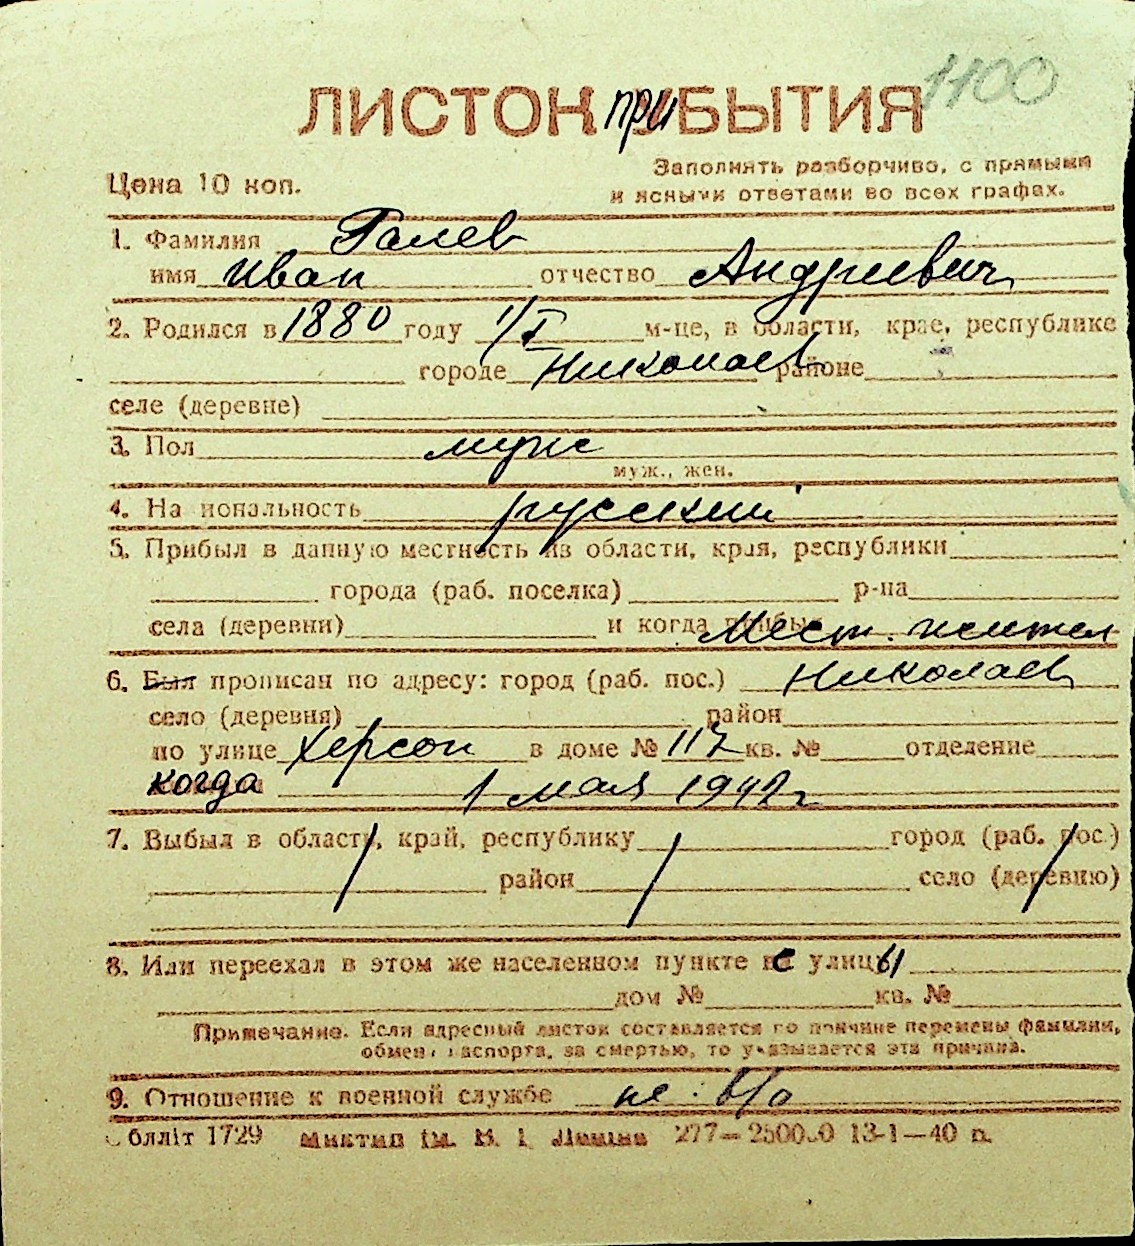 1100
ЛИСТОК прибЫТИЯ
Цена 10 коп.
Заполнять разборчиво, с прямыми
и ясными ответами во всех графах.
1. Фамилия Галев
имя Иван отчество Андреевич
2. Родился в 1880 году 1/I м-це, в области, крае, республике
городе Николаев районе
селе (деревне)
3. Пол муж
муж., жен.
4. На иональность русский
5. Прибыл в данную местность из области, края, республики
города (раб. поселка) р-на
села (деревни) и когда прибыл Мест. житель
6. Был прописан по адресу: город (раб. пос.) Николаев
село (деревня) район
по улице Херсон в доме № 117 кв. № отделение
когда 1 мая 1942 г
7. Выбыл в область, край, республику город (раб. пос.)
район село (деревню)
8. Или переехал в этом же населенном пункте с улицы
дом № кв. №
Примечание. Если адресный листок составляется по причине перемены фамилии,
обмена паспорта, за смертью, то указывается эта причина.
9. Отношение к военной службе не. в/о
Облліт 1729 им. В. І. Леніна 277—250000 13-1—40 п.